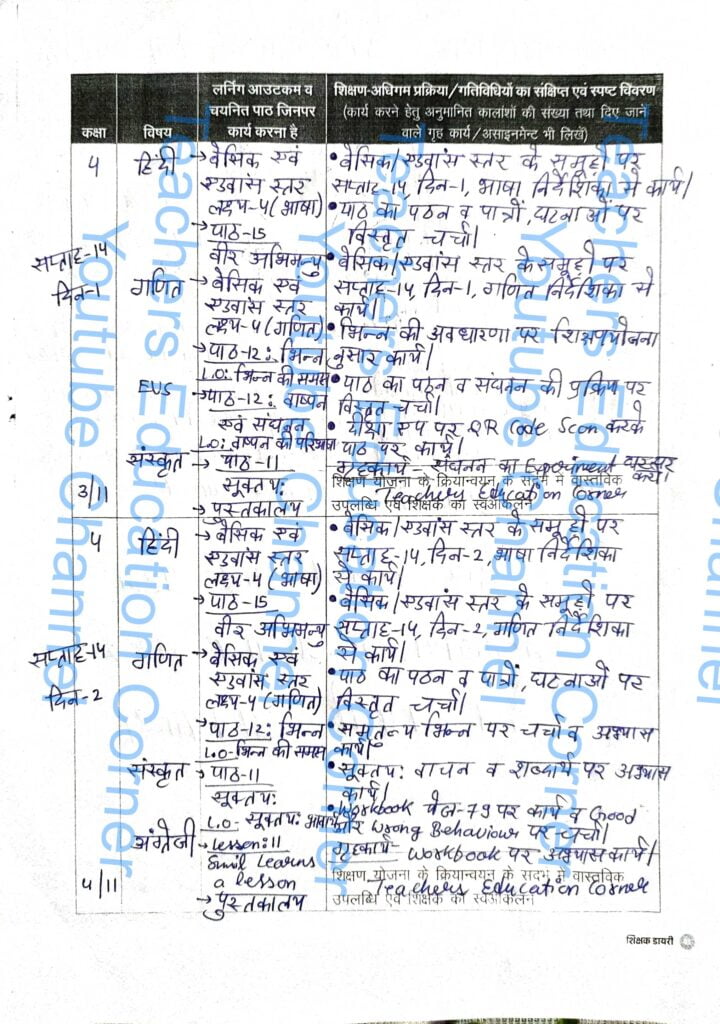 कक्षा
विषय
लर्निंग आउटकम व
चयनित पाठ जिनपर
कार्य करना है
शिक्षण-अधिगम प्रक्रिया/गतिविधियों का संक्षिप्त एवं स्पष्ट विवरण
(कार्य करने हेतु अनुमानित कालांशों की संख्या तथा दिए जाने
वाले गृह कार्य/असाइनमेंट भी लिखें)
सप्ताह-14
दिन-1
3/11
4
हिंदी
→ बेसिक एवं
एडवांस स्तर
लक्ष्य-4 (भाषा)
→ पाठ-15
वीर अभिमन्यु
गणित
→ बेसिक एवं
एडवांस स्तर
लक्ष्य-4 (गणित)
→ पाठ-12: भिन्न
L.O: भिन्न की समझ
EVS
→ पाठ-12: वाष्पन
एवं संघनन
L.O: वाष्पन की परिभाषा
संस्कृत
→ पाठ-11
सूक्तयः
→ पुस्तकालय
• बेसिक/एडवांस स्तर के समूहों पर
सप्ताह-14, दिन-1, भाषा निर्देशिका से कार्य।
• पाठ का पठन व पात्रों, घटनाओं पर
विस्तृत चर्चा।
• बेसिक/एडवांस स्तर के समूहों पर
सप्ताह-14, दिन-1, गणित निर्देशिका से
कार्य।
• भिन्न की अवधारणा पर
नुसार कार्य।
• पाठ का पठन व संघनन की प्रक्रिया पर
विस्तृत चर्चा।
• दीक्षा एप पर QR Code Scan करके
पाठ पर कार्य।
गृहकार्य - संघनन का Experiment घर पर
करो।
शिक्षण योजना के क्रियान्वयन के सदर्भ में वास्तविक
Teachers Education Corner
उपलब्धि एवं शिक्षक का स्वआंकलन
सप्ताह-14
दिन-2
4/11
4
हिंदी
→ बेसिक एवं
एडवांस स्तर
लक्ष्य-4 (भाषा)
→ पाठ-15
वीर अभिमन्यु
गणित
→ बेसिक एवं
एडवांस स्तर
लक्ष्य-4 (गणित)
→ पाठ-12: भिन्न
L.O- भिन्न की समझ
संस्कृत
→ पाठ-11
सूक्तयः
L.O - सूक्तयः
अंग्रेजी
→ Lesson: 11
Sunil Learns
a lesson
→ पुस्तकालय
• बेसिक/एडवांस स्तर के समूहों पर
सप्ताह-14, दिन-2, भाषा निर्देशिका
से कार्य।
• बेसिक/एडवांस स्तर के समूहों पर
सप्ताह-14, दिन-2, गणित निर्देशिका
से कार्य।
• पाठ का पठन व पात्रों, घटनाओं पर
विस्तृत चर्चा।
• समतुल्य भिन्न पर चर्चा व अभ्यास
कार्य।
• सूक्तयः वाचन व शब्दार्थ पर अभ्यास
कार्य।
• Workbook पेज-79 पर कार्य व Good
और Wrong Behaviour पर चर्चा।
गृहकार्य- Workbook पर अभ्यास कार्य।
शिक्षण योजना के क्रियान्वयन के सदर्भ में वास्तविक
Teachers Education Corner
उपलब्धि एवं शिक्षक का स्वआंकलन
शिक्षक डायरी
Teachers Education Corner
Youtube Channel
Teachers Education Corner
Youtube Channel